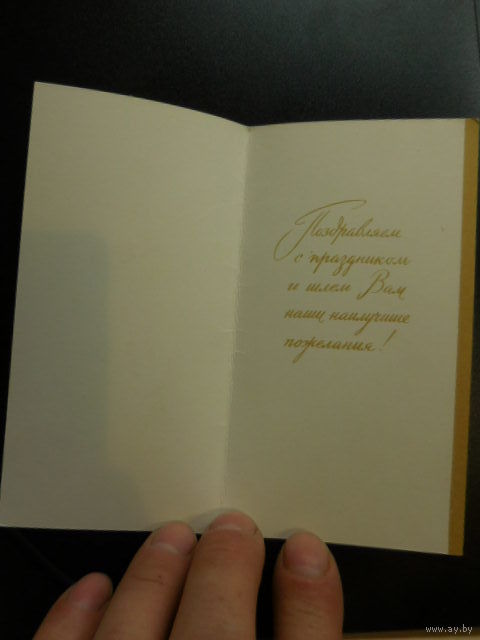 Поздравляем
с праздником
и шлем Вам
наши наилучшие
пожелания!
www.ay.by